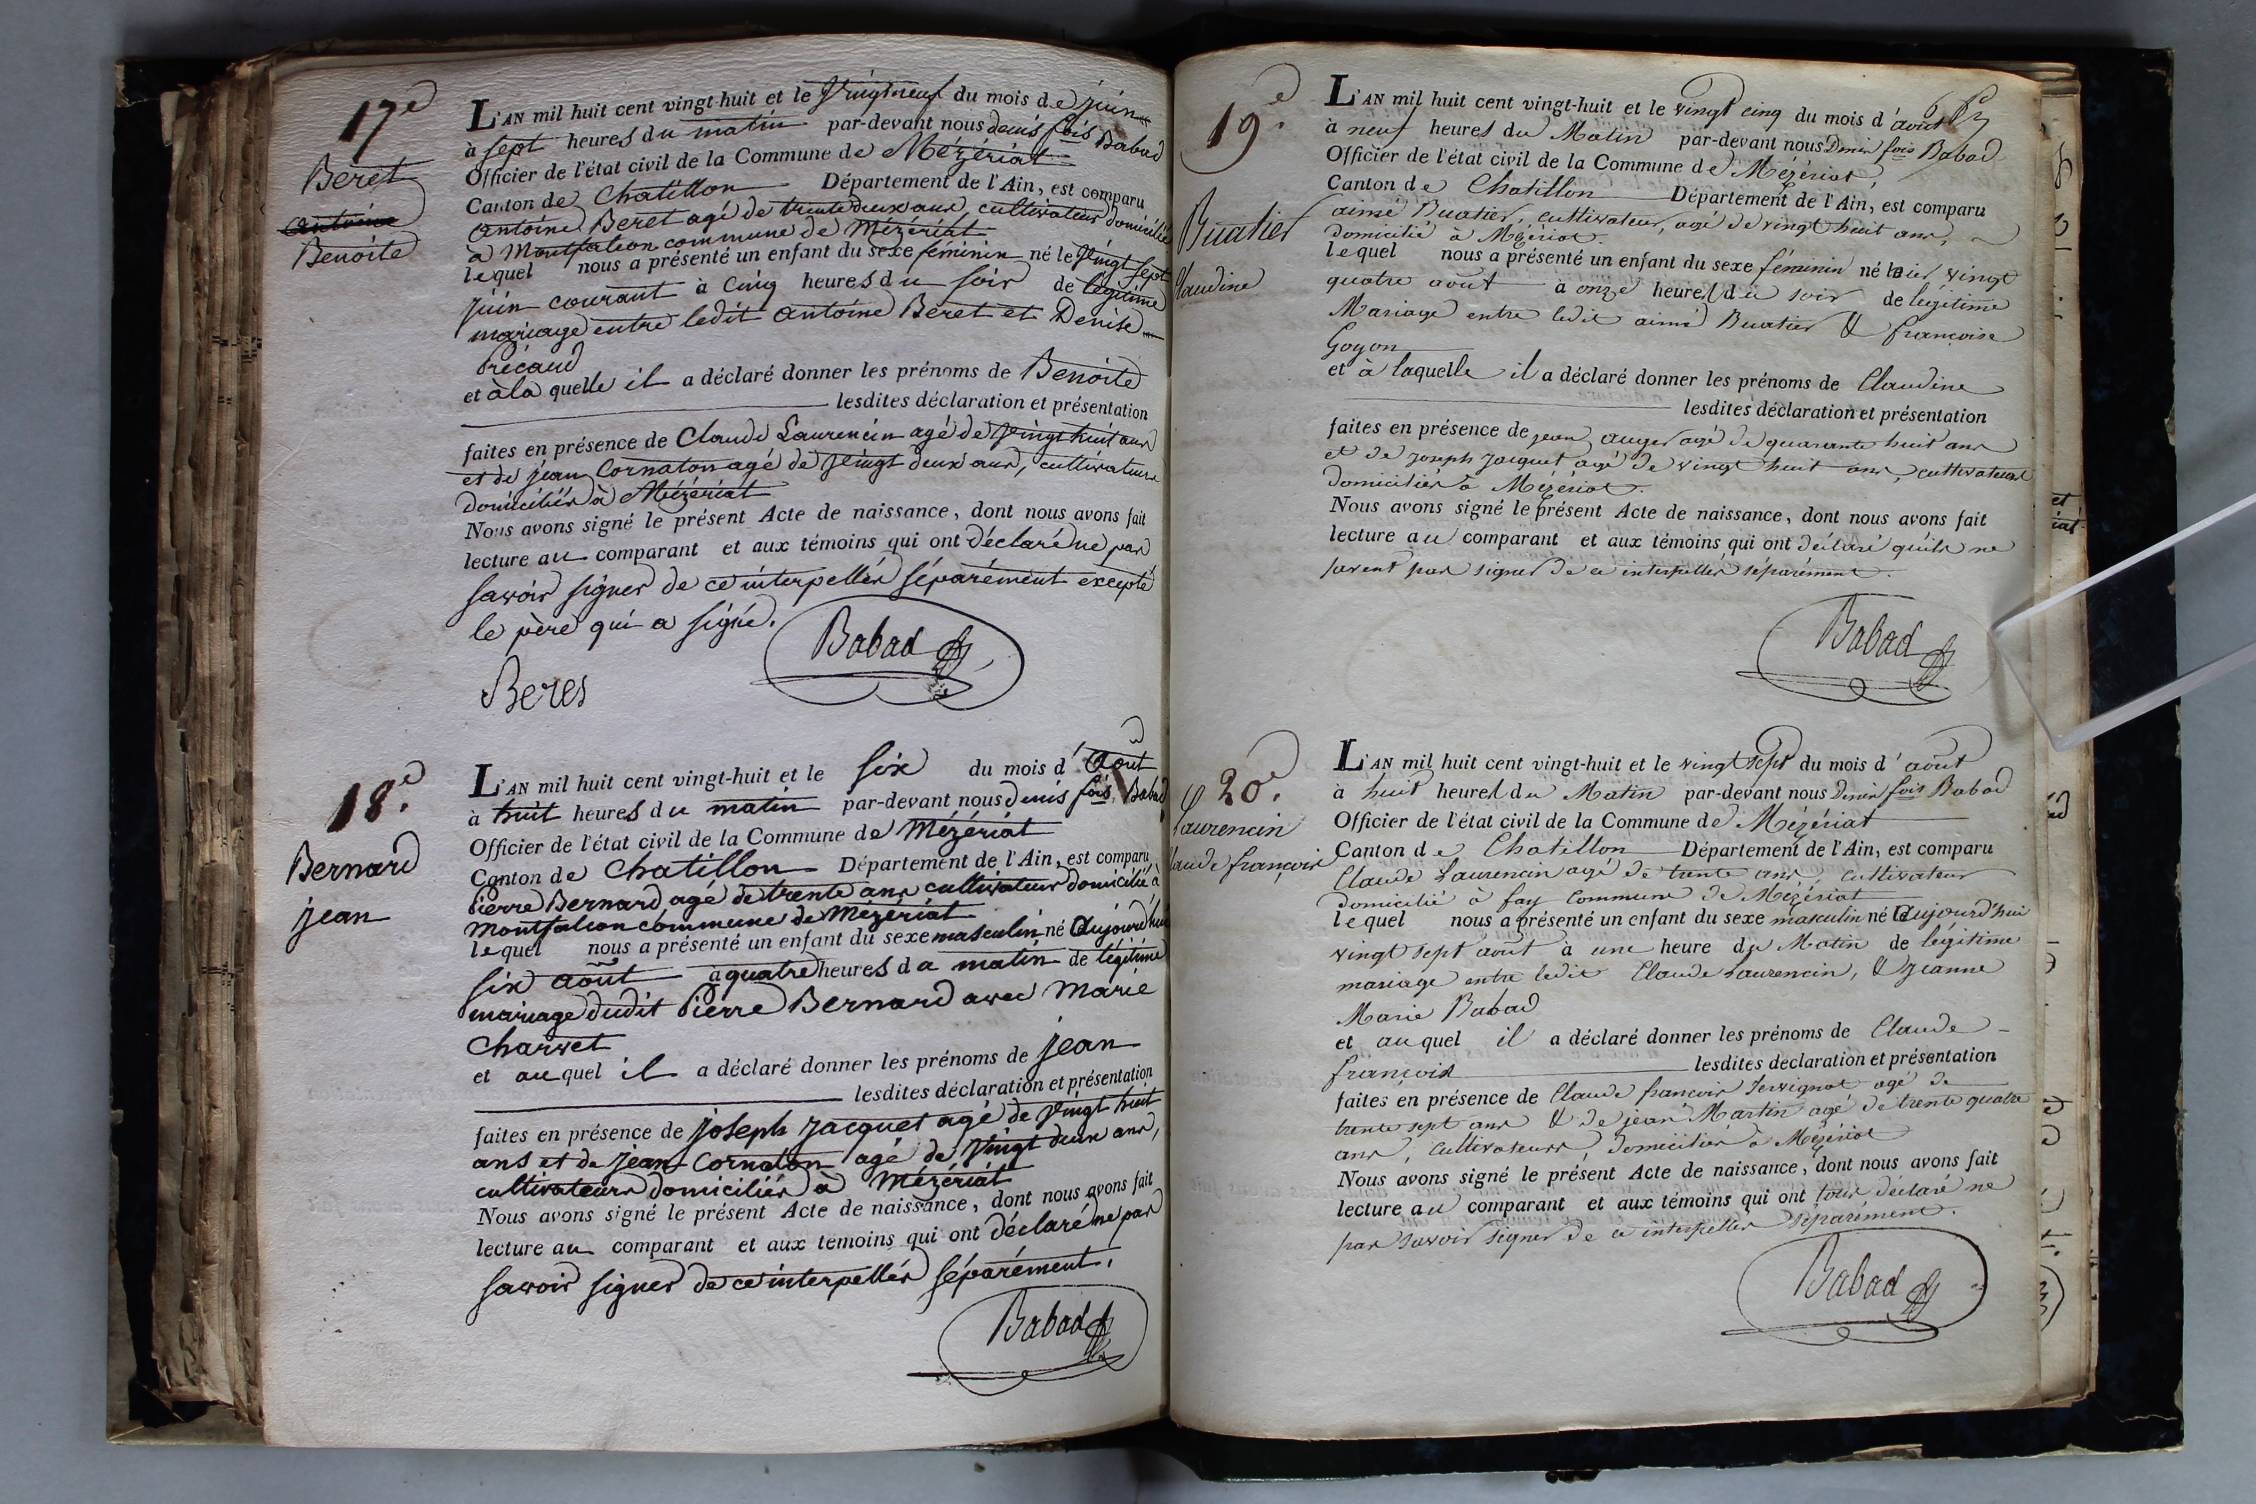 17e
Beret
Antoine
Benoite
L'AN mil huit cent vingt-huit et le vingt neuf du mois de juin
à sept heures du matin par-devant nous denis fois Babad
Officier de l'état civil de la Commune de Mézériat
Canton de Chatillon Département de l'Ain, est comparu
antoine Beret agé de trente deux ans cultivateur domicilié
a Montfalcon commune de Mézériat
lequel nous a présenté un enfant du sexe féminin né le vingt sept
juin courant à cinq heures du soir de légitime
mariage entre ledit antoine Beret et Denise
Pricaud
et à la quelle il a déclaré donner les prénoms de Benoite
lesdites déclaration et présentation
faites en présence de Claude Laurencin agé de vingt huit ans
et de jean Cornaton agé de vingt deux ans, cultivateurs
domiciliés à Mézériat
Nous avons signé le présent Acte de naissance, dont nous avons fait
lecture au comparant et aux témoins qui ont déclaré ne pas
savoir signer de ce interpellés séparément excepté
le père qui a signé.
Babad
Beres
18e.
Bernard
jean
L'AN mil huit cent vingt-huit et le six du mois d'Août
à huit heures du matin par-devant nous denis fois Babad
Officier de l'état civil de la Commune de Mézériat
Canton de Chatillon Département de l'Ain, est comparu
Pierre Bernard agé de trente ans cultivateur domicilié à
Montfalcon commune de Mézériat
lequel nous a présenté un enfant du sexe masculin né Aujourd'hui
six août à quatre heures da matin de légitime
mariage dudit Pierre Bernard avec Marie
Charvet
et auquel il a déclaré donner les prénoms de jean
lesdites déclaration et présentation
faites en présence de joseph jacquet agé de vingt huit
ans et de jean Cornaton agé de vingt deux ans,
cultivateurs domiciliés à Mézériat
Nous avons signé le présent Acte de naissance, dont nous avons fait
lecture au comparant et aux témoins qui ont déclaré ne pas
savoir signer de ce interpellés séparément.
Babad
19e.
Buatier
Claudine
L'AN mil huit cent vingt-huit et le vingt cinq du mois d'août
à neuf heures du Matin par-devant nous Denis fois Babad
Officier de l'état civil de la Commune de Mézériat
Canton de Chatillon Département de l'Ain, est comparu
aimé Buatier, cultivateur, agé de vingt huit ans,
domicilié à Mézériat.
lequel nous a présenté un enfant du sexe féminin né hier vingt
quatre août à onze heures du soir de légitime
Mariage entre ledit aimé Buatier & françoise
Goyon
et à laquelle il a déclaré donner les prénoms de Claudine
lesdites déclaration et présentation
faites en présence de jean auger agé de quarante huit ans
et de Joseph Jacquet agé de vingt huit ans, cultivateurs
domiciliés à Mézériat.
Nous avons signé le présent Acte de naissance, dont nous avons fait
lecture au comparant et aux témoins qui ont déclaré qu'ils ne
savent pas signer de ce interpellés séparément.
Babad
20e.
Laurencin
Claude françois
L'AN mil huit cent vingt-huit et le vingt sept du mois d'août
à huit heures du Matin par-devant nous Denis fois Babad
Officier de l'état civil de la Commune de Mézériat
Canton de Chatillon Département de l'Ain, est comparu
Claude Laurencin agé de trente ans cultivateur
domicilié à fay Commune de Mézériat
lequel nous a présenté un enfant du sexe masculin né Aujourd'hui
vingt sept août à une heure du Matin de légitime
mariage entre ledit Claude Laurencin, & jeanne
Marie Babad
et auquel il a déclaré donner les prénoms de Claude
françois lesdites declaration et présentation
faites en présence de Claude françois agé de
trente sept ans & de jean Martin agé de trente quatre
ans, cultivateurs, domiciliés à Mézériat
Nous avons signé le présent Acte de naissance, dont nous avons fait
lecture au comparant et aux témoins qui ont tous déclaré ne
pas savoir signer de ce interpellés séparément.
Babad